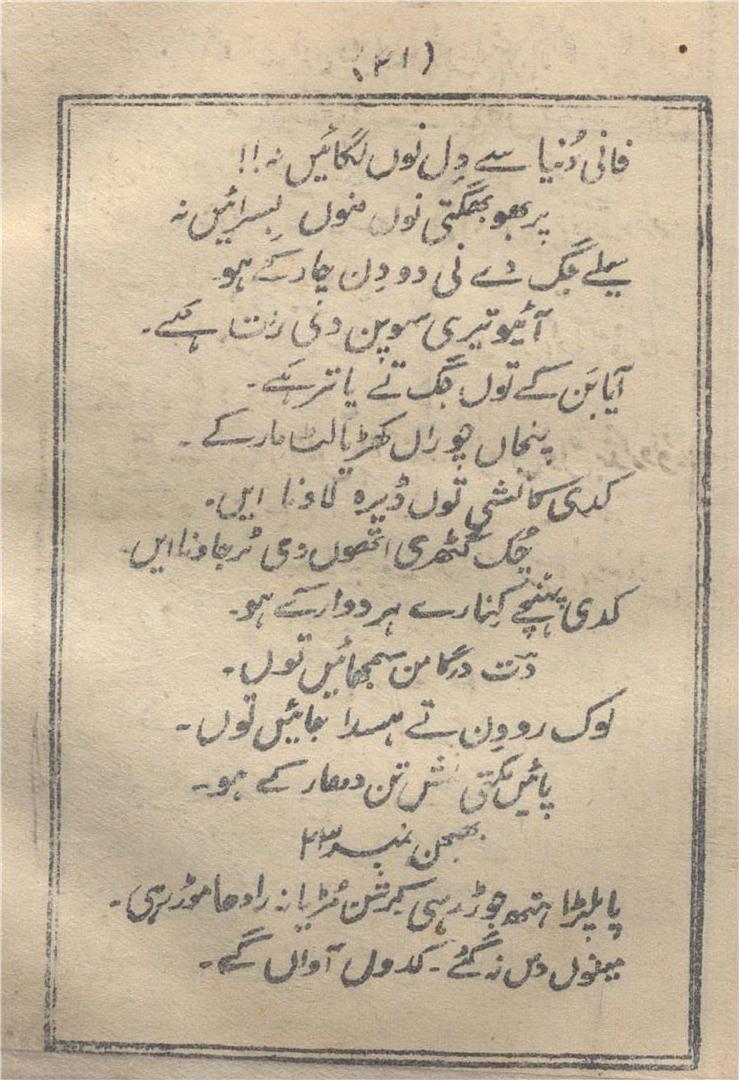 (۲۱)
فانی دُنیا سے دِل نوں لگائیں نہ!!
پربھو بھگتی نوں منوں بِسرائیں نہ
میلے جگ دے نی دو دِن چار کے ہو۔
آئیو تیری سوپن دنی رت ہے۔
آیا بَن کے توں جگ تے یاتر ہے۔
پنجاں چوراں کھڑیا لٹ مار کے۔
کدی کانشی توں ڈیرہ لاونا ایں۔
چُک گٹھڑی اتھوں دی ٹُر جاونا ایں۔
کدی پہنچے کِنارے ہر دوار کے ہو۔
دت درگا من سمجھائیں توں۔
لوک روون تے ہسدا جائیں توں۔
پائیں مُکتی تن دھار کے ہو۔
بھجن نمبر ۲۳
پا پلڑا ہتھ جوڑ رہی کرشن مُڑیا نہ رادھا موڑ رہی۔
مینوں دس نہ گئے۔ کدوں آواں گے۔